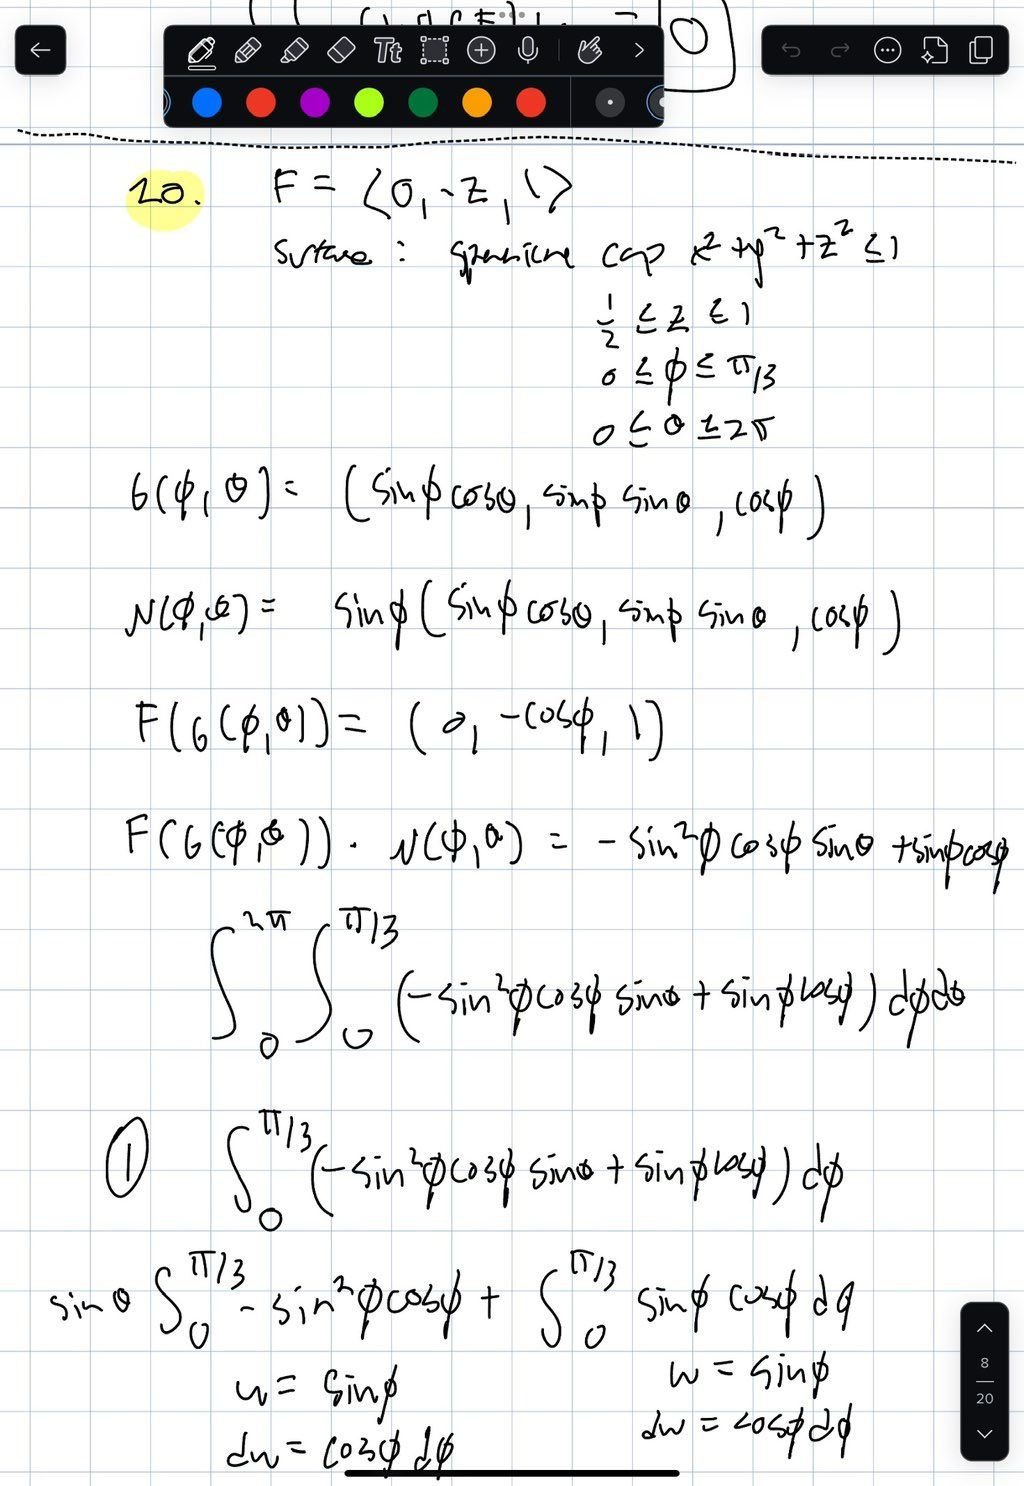 Tt
20. F = ⟨0, -z, 1⟩
Surface : cap x² + y² + z² ≤ 1
1/2 ≤ z ≤ 1
0 ≤ ϕ ≤ π/3
0 ≤ θ ≤ 2π
G(ϕ, θ) = (sinϕ cosθ, sinϕ sinθ, cosϕ)
N(ϕ, θ) = sinϕ (sinϕ cosθ, sinϕ sinθ, cosϕ)
F(G(ϕ, θ)) = (0, -cosϕ, 1)
F(G(ϕ, θ)) · N(ϕ, θ) = - sin²ϕ cosϕ sinθ + sinϕ cosϕ
∫₀^2π ∫₀^π/3 (-sin²ϕ cosϕ sinθ + sinϕ cosϕ) dϕ dθ
① ∫₀^π/3 (-sin²ϕ cosϕ sinθ + sinϕ cosϕ) dϕ
sinθ ∫₀^π/3 - sin²ϕ cosϕ + ∫₀^π/3 sinϕ cosϕ dϕ
u = sinϕ w = sinϕ
du = cosϕ dϕ dw = cosϕ dϕ
8
20